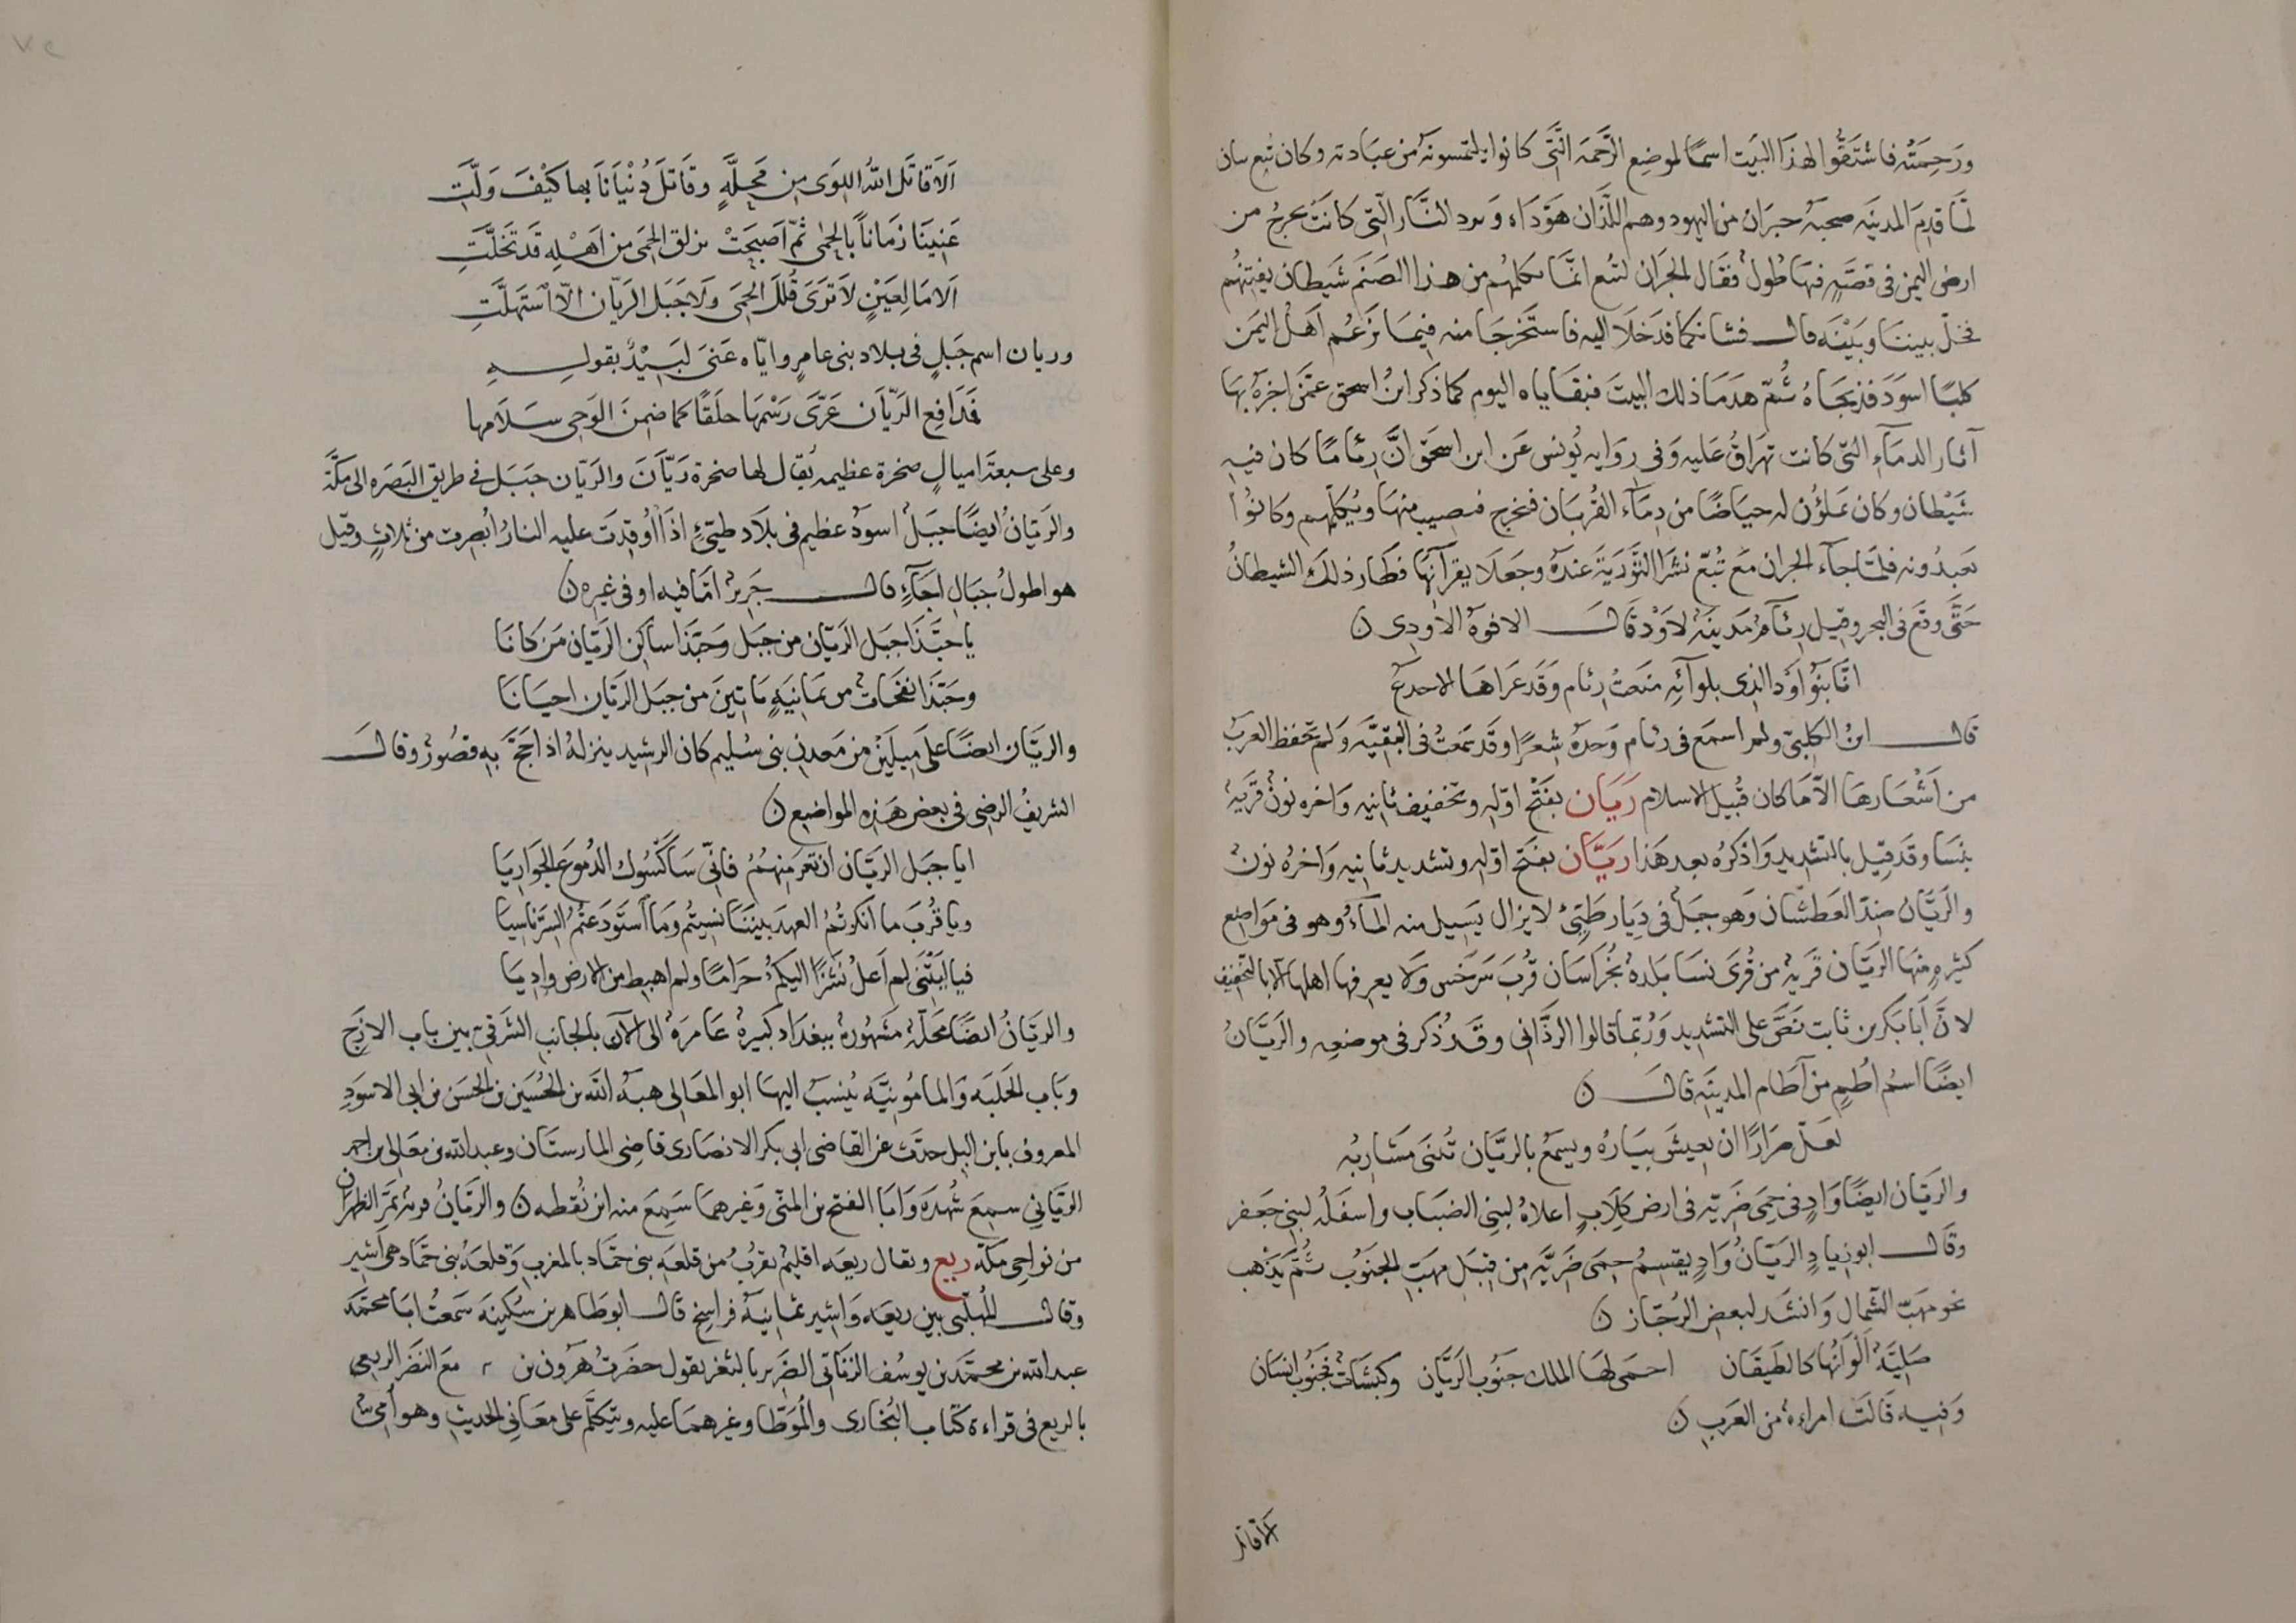 ورَحِمَتْه فاشتَقّوا لهذَا البَيت اسمًا لموضِع الرَّحمَه الَّتي كانوا يلتمسونَه من عبَادته وكان تبع تبان
لمَّا قدِمَ المدينَه صحبَه حبرَان من اليهود وهم اللَّذَان هَوَّدَاه وَرد النَّار الّتى كانَتْ تخرجُ من
ارض اليمن فى قصَّهٍ فيهَا طُولٌ فقَال الحبران لتبع انمَّا يكلمهُم من هذا الصَنَم شَيطان يفتِنُهُم
فخلّ بيننَا وبَيْنَه قال فشانكما فدَخلَا اليه فاستَخرجَا منه فِيمَا يَزعُم اَهْلُ اليَمَن
كلبًا اسوَدَ فذبحَاهُ ثُمّ هدَمَا ذلك البيتَ فبقَاياه اليوم كما ذكر ابنُ اسحق عمَّن اخبرَهُ بهَا
آثار الدمَآءِ التى كانت تهرَاقُ عَليه وَفى رِوَايه يُونس عَن ابن اسحَق انَّ رِئامًا كان فيهِ
شَيْطان وكان يملؤُن له حيَاضًا من دِمَآء القُربَان فيخرج فيصيب منهَا ويُكلّمهم وكانوُا
يَعبدُونه فلمَّا جآء الحبران مَعَ تُبّع نشرَا التَّوْرَيَة عندَهُ وجَعَلَا يقرآنهَا فطَار ذلكَ الشيطانُ
حَتَّى وقَع فى البحر وقِيل رِئآم مَدينَة لِاَوْد قَالَ الافوَهُ الاَودِى ن
انّا بَنُو اَوْد الذى بلوآئِه منعتْ رِئام وقَد عزَاهَا الاجدعُ
قَال ابنُ الكلبىّ ولم اسمَع فى رئام وَحدَهُ شِعرًا وقَد سَمعتُ فى البَقيَّه وَلم تحفظ العربُ
من اَشْعَارهَا الاّ مَا كان قُبيل الاسلام رَيَان بفَتح اوّله وتخفيف ثانيه وَاخره نونٌ قَريَةٌ
بنسَا وقَد قِيل بالتشديد وَاذكرُه بعد هَذا رَيَّان بفَتح اوّله وتشديد ثانيه وَاخرهُ نونٌ
والرَيَّان ضِدّ العَطشَان وَهو جبَلٌ فى دِيَار طَيّئ لا يزال يَسِيل منه المآءُ وهو فى مَواضِع
كثيرهٍ منهَا الريّان قَريةٌ من قُرى نسَا بَلدهٌ بخُرَاسَان قُربَ سَرَخس وَلا يعرفها اهلهَا الا بالتخفيف
لانَّ اَبَا بَكر بن ثابت نَصَّ على التشديد وَرُبّما قالوا الرذَّانى وقَد ذُكر فى موضعِه والريَّانُ
ايضًا اسمُ اُطُمٍ من آطام المدينَه قالَ ن
لعَلّ ضرَارًا ان يعيشَ بيَارُه ويسمَعُ بالريَّان تُبنَى مَشَاربُه
والريّان ايضًا وَادٍ فى حمَى ضَريّه فى ارض كلَابٍ اعلاهُ لبنى الضبَاب واسفَلُه لبنى جَعفر
وقَال ابو زيادٍ الريّانُ وَادٍ يقسِمُ حِمَى ضَريَّه من قِبَل مَهَبّ الجنُوب ثُمَّ يَذهب
نحو مَهَبّ الشمَال وَانشَد لبعض الرُجَّاز ن
خَلِيَّةٌ اَلْوَانُهَا كالطيقَان احمَى لهَا الملك جنُوبَ الرَيَّان وكبشَات فجنُوبَ انسَان
وَفيه قَالَت امراةٌ من العَرَب ن
الا قاتل
اَلاَ قَاتَلَ اللهُ اللِوَى مِن مَحِلَّهٍ وقَاتَلَ دُنْيَانَا بها كَيْفَ وَلَّتِ
غَنِينَا زمَاناً بالحِمَى ثُمّ اَصبَحَتْ بزلق الحِمَى من اَهْلِه قَد تخَلَّتِ
اَلا مَا لِعَيْنٍ لاَ تَرَى قُلَلَ الحِمَى وَلاَ جَبَل الريّان الاّ اسْتَهلَّتِ
وريان اسم جَبَلٍ فى بلاد بنى عامِرٍ وايّاه عَنَى لَبَيْدٌ بقولِهِ
فمَدَافِع الرَيّان عَرَّى رَسْمَهَا خلَقًا كما ضَمِنَ الوَحِى سِلَامها
وعلى سبعَة اميالٍ صخرة عظيمه يُقال لها صخرة رَيّانَ والرَيّان جَبَل فى طريق البَصرَه الى مَكَّة
والرَيّانُ ايضًا جبَلٌ اسوَدُ عظيم فى بلَاد طيّئٍ اذَا اُوقِدَت عليه النارُ اُبصِرت من ثلاثٍ وقيل
هو اطولُ جبَالِ اجَآءٍ قال جَرِيرٌ امّا فيه او فى غيره ن
يا حبّذَا جَبَل الرَيّان من جَبَل وَحَبّذا ساكِن الريّان مَن كَانَا
وحَبّذَا نفحَاتٌ من يمَانِيَهٍ مَاتِينَ من جبَل الريّان احيَانَا
والريَّان ايضًا على مِيلَيْن من مَعدن بنى سُليم كان الرشيد ينزلهُ اذا حَجَّ بهِ قصُورٌ وقال
الشريفُ الرضى فى بعض هَذِه المواضيع ن
ايا جبَل الريّان ان تعرَ منهُمُ فانّى سَاكْسُوك الدُموعَ الجوَارِيَا
ويا قُربَ ما انكرتُم العهدَ بينَنَا نسِيتُم وَمَا اسْتَودَعتُم السِرّ ناسيا
فيا لَيْتَنى لم اَعلُ نَشزًا اليكمُ حرَامًا ولم اهبط من الارض وادِيَا
والريّانُ ايضًا محَلّةٌ مَشهُورةٌ ببغدَاد كبيرةٌ عَامرَةٌ الى الآن بالجانبِ الشرَقىِّ بين بَاب الازَجِ
وبَاب الحَلبَه وَالمامُونيَّه يُنسَبُ اليهَا ابو المعَالى هبَة الله بن الحُسَين بن الحسَن بن ابى الاسوَدِ
المعروف بابن البل حدّث عن القاضى ابى بكر الانصارى قاضى المارستَان وعبد الله بن معَالى بن احمد
الريّانِى سمِعَ شُهدَه وَابَا الفتح بن المنّى وَغيرهمَا سَمِعَ منه ابن نُقطه ن والريّانُ قريَة بمَرّ الظهران
من نواحِى مكّه ريع ويقال ريعَه اقليمٌ بقُربُ من قلعَه بنى حمَّاد بالمغرب وَقلعَةُ بنى حَمَّاد هى اَشِير
وقال المُهلّبى بين ريعَه وَاشير ثمانيَة فراسِخ قال ابو طَاهر بن سُكينه سَمعتُ ابَا محمَّد
عبد الله بن محمَّد بن يوسُف الزنَاتى الضَرير بالثغر يقول حضَرتُ هَرون بن مع النضر الريعى
بالريع فى قراءة كتَاب البُخارى والمُوَطّا وغيرهمَا عليه ويتَكلّم على معَانِى الحديثِ وهو اُمىّ